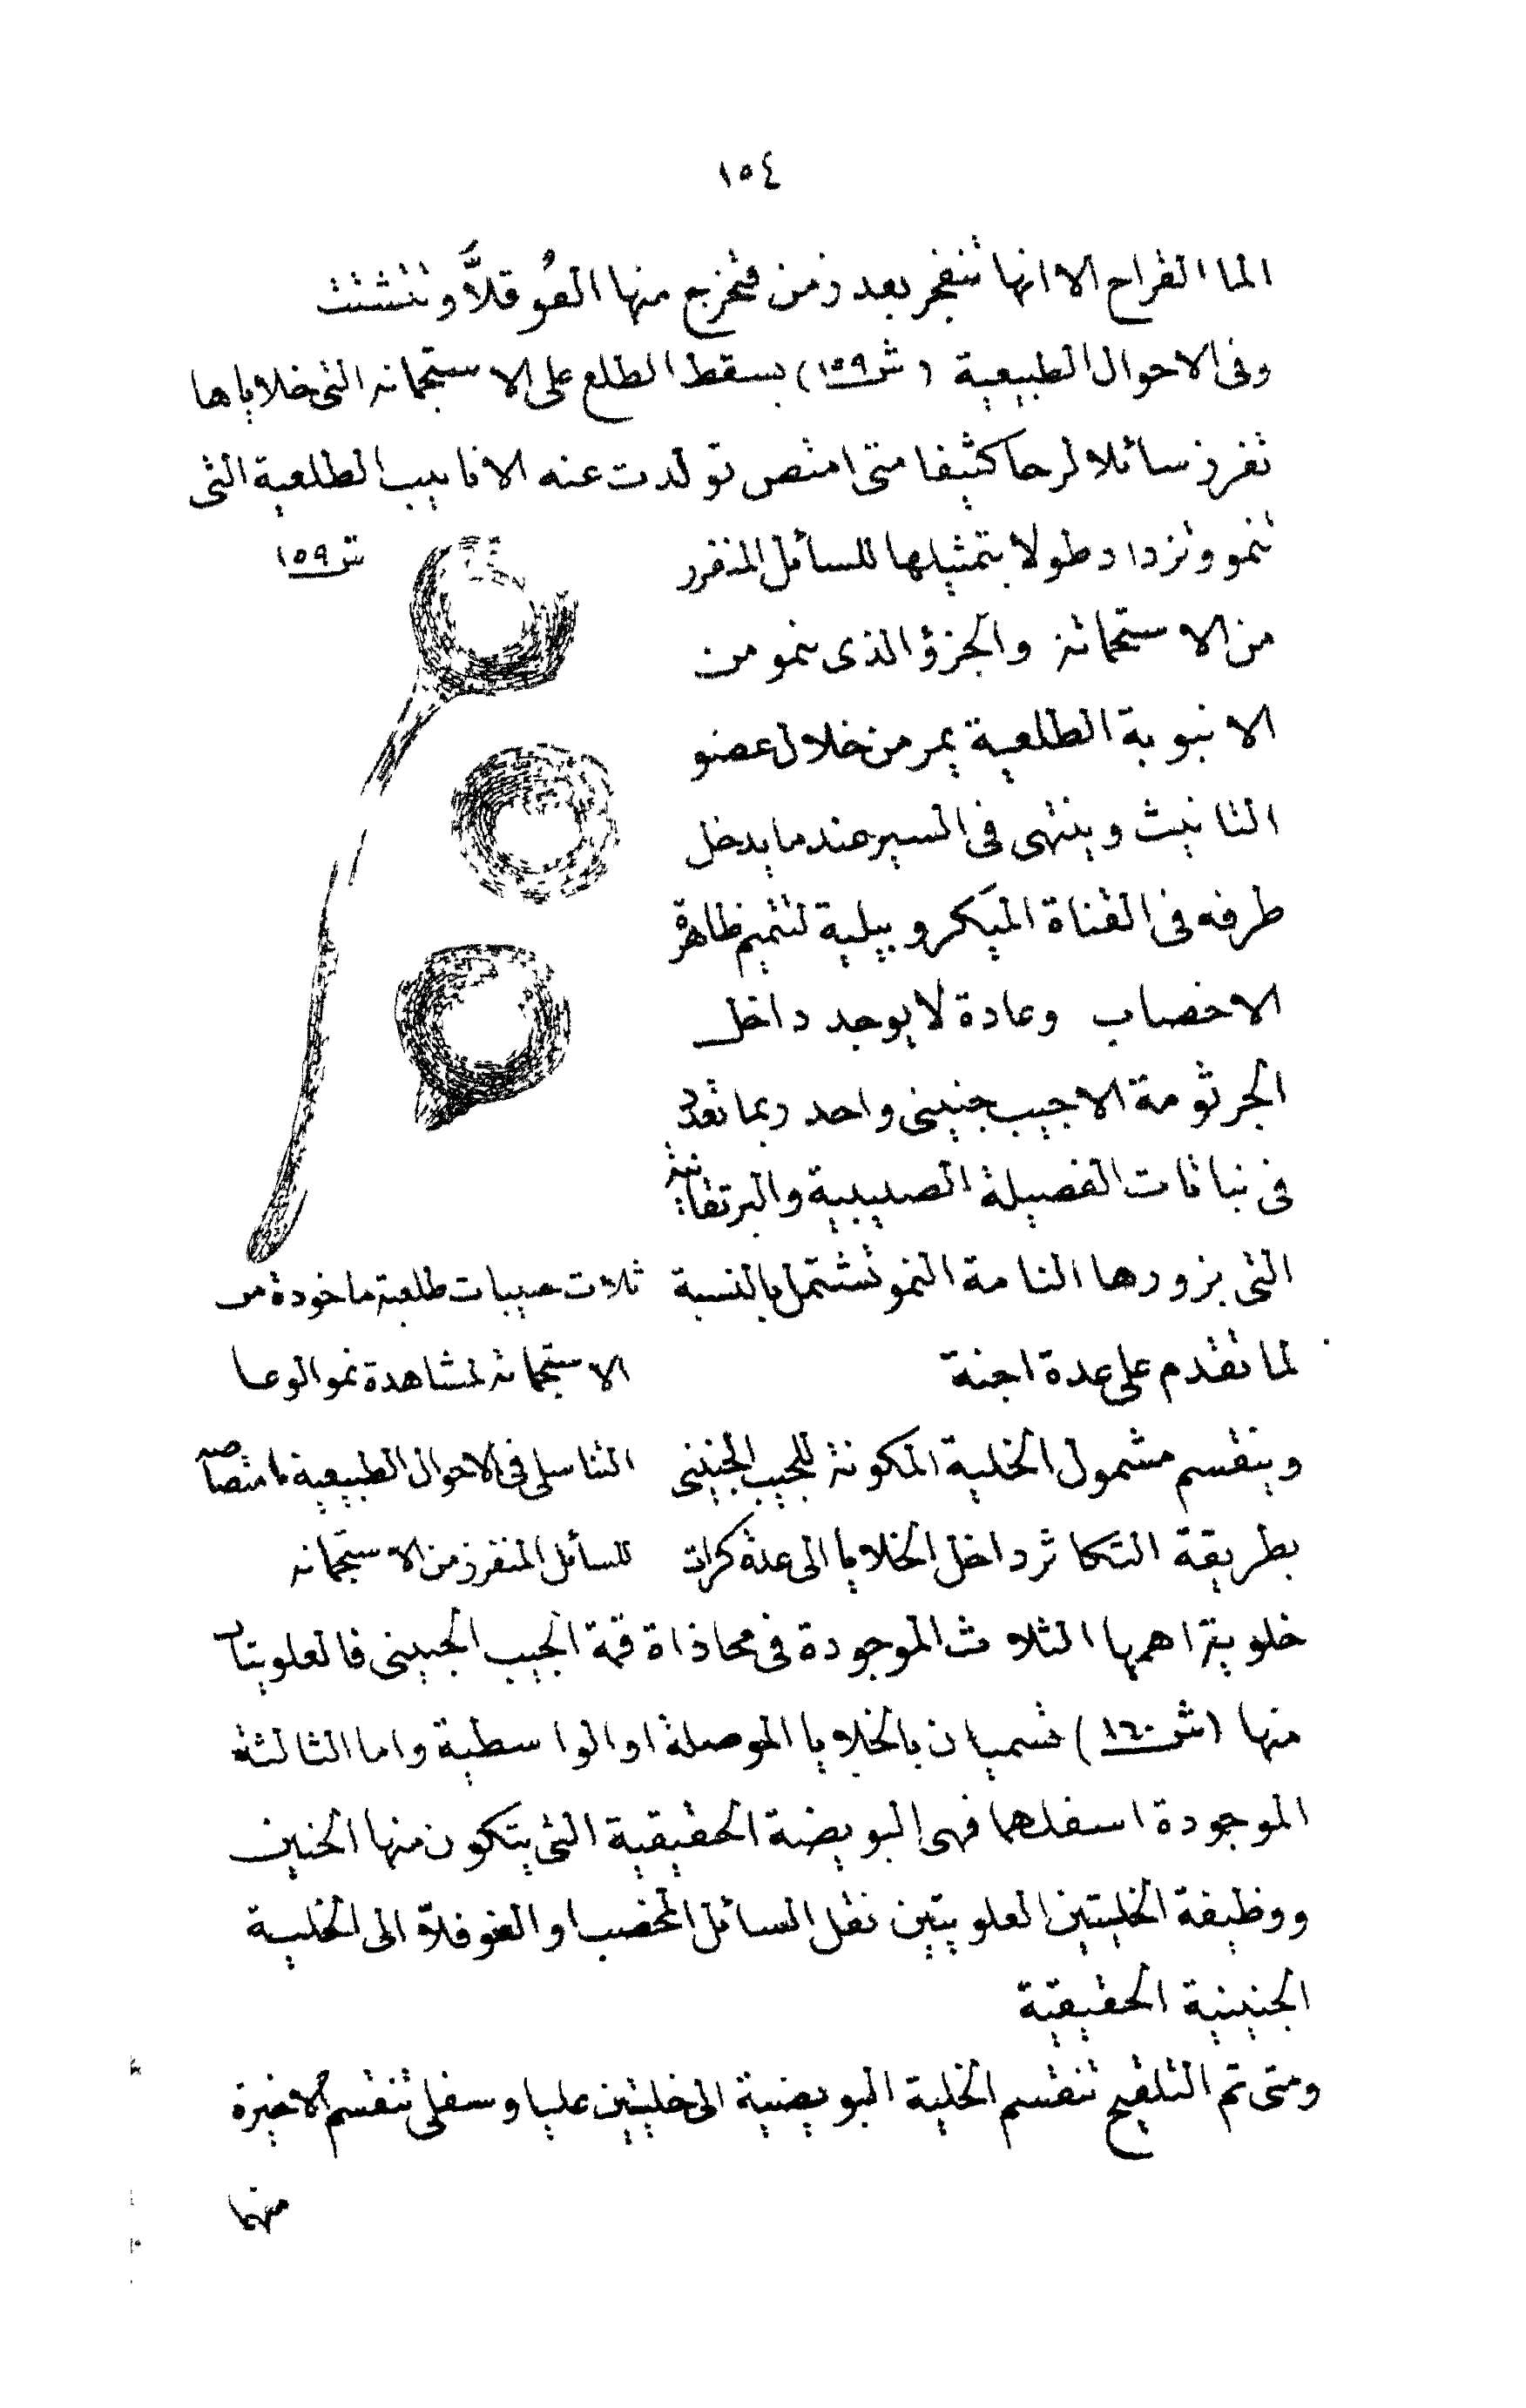 ١٥٤
الما القراح الا انها تنفجر بعد زمن فتخرج منها الفُوقلاَّ وتتشتت
وفى الاحوال الطبيعية (ش ١٥٩) يسقط الطلع على الاستجمانه التى خلاياها
تفرز سائلا لزجا كثيفا متى امتص تولدت عنه الانابيب الطلعية التى
تنمو وتزداد طولا بتمثيلها للسائل المنفرز
من الاستجمانه والجزؤ الذى ينمو من
الانبوبة الطلعية يمر من خلال عضو
التانيث وينتهى فى السير عندما يدخل
طرفه فى القناة الميكروبيلية لتتميم ظاهرة
الاخصاب وعادة لا يوجد داخل
الجرثومة الا جيب جنينى واحد ربما تعدد
فى نباتات الفصيلة الصليبية والبرتقانية
التى بزورها التامة النمو تشتمل بالنسبة
لما تقدم على عدة اجنة
ش ١٥٩
ثلاث حبيبات طلعية ماخوذة من
الاستجمانه لمشاهدة نمو الوعا
التناسلى فى الاحوال الطبيعية بامتصاصه
للسائل المنفرز من الاستجمانه
وينقسم مشمول الخلية المكونة للجيب الجنينى
بطريقة التكاثر داخل الخلايا الى عدة كرات
خلوية اهمها الثلاث الموجودة فى محاذاة قمة الجيب الجنينى فالعلويتان
منها (ش ١٦٠) تسميان بالخلايا الموصلة او الواسطية واما الثالثة
الموجودة اسفلهما فهى البويضة الحقيقية التى يتكون منها الجنين
ووظيفة الخليتين العلويتين نقل السائل المخصب او الفوقلاّ الى الخلية
الجنينية الحقيقية
ومتى تم التلقيح تنقسم الخلية البويضية الى خليتين عليا وسفلى تنقسم الاخيرة
منها